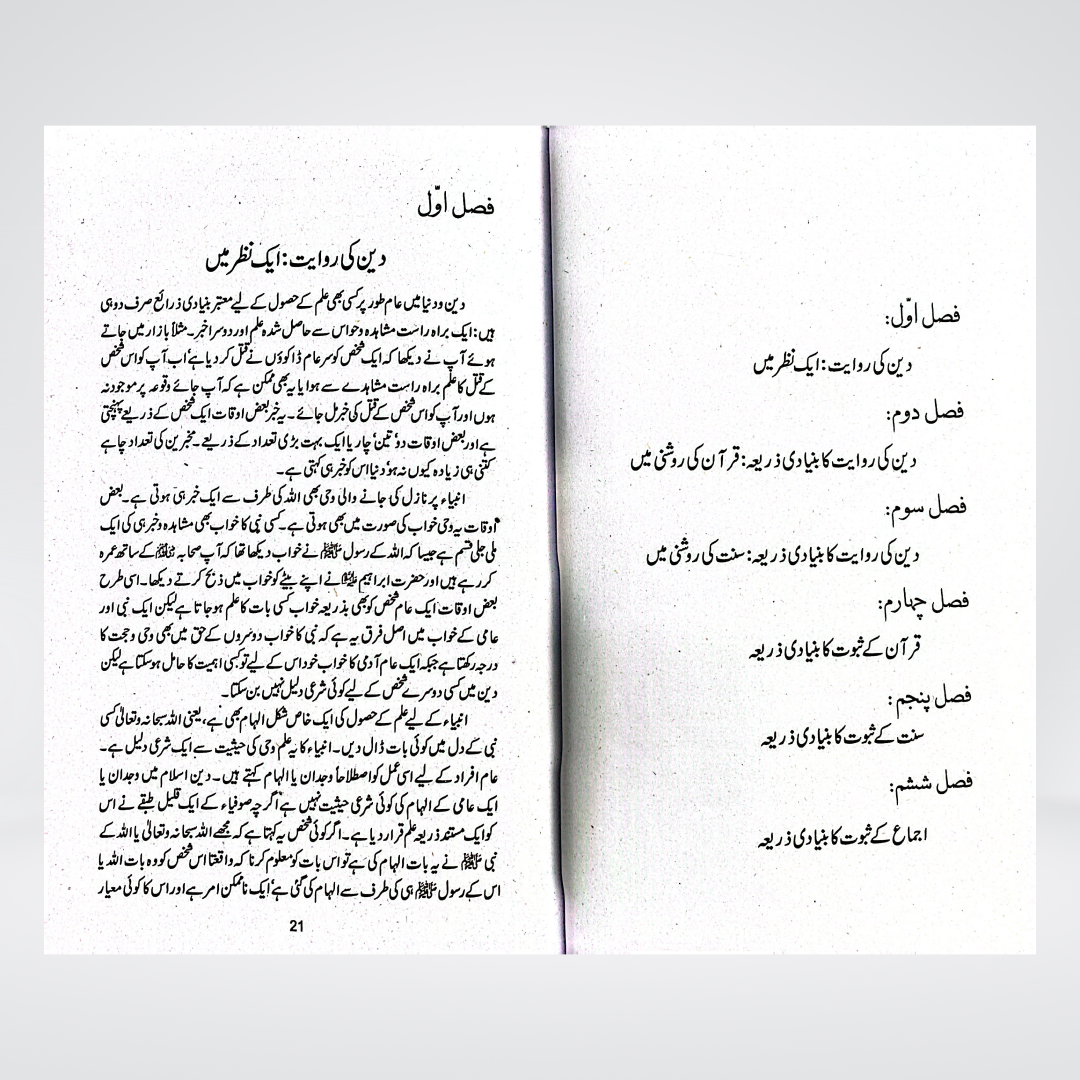 فصل اوّل:
دین کی روایت: ایک نظر میں
فصل دوم:
دین کی روایت کا بنیادی ذریعہ: قرآن کی روشنی میں
فصل سوم:
دین کی روایت کا بنیادی ذریعہ: سنت کی روشنی میں
فصل چہارم:
قرآن کے ثبوت کا بنیادی ذریعہ
فصل پنجم:
سنت کے ثبوت کا بنیادی ذریعہ
فصل ششم:
اجماع کے ثبوت کا بنیادی ذریعہ
فصل اوّل
دین کی روایت: ایک نظر میں
دین و دنیا میں عام طور پر کسی بھی علم کے حصول کے لیے معتبر بنیادی ذرائع صرف دو ہی
ہیں: ایک براہ راست مشاہدہ و حواس سے حاصل شدہ علم اور دوسرا خبر۔ مثلاً بازار میں جاتے
ہوئے آپ نے دیکھا کہ ایک شخص کو سرعام ڈاکوؤں نے قتل کر دیا ہے‘ اب آپ کو اس شخص
کے قتل کا علم براہ راست مشاہدے سے ہوا یا یہ بھی ممکن ہے کہ آپ جائے وقوعہ پر موجود نہ
ہوں اور آپ کو اس شخص کے قتل کی خبر مل جائے۔ یہ خبر بعض اوقات ایک شخص کے ذریعے پہنچتی
ہے اور بعض اوقات دو‘ تین‘ چار یا ایک بہت بڑی تعداد کے ذریعے۔ مخبرین کی تعداد چاہے
کتنی ہی زیادہ کیوں نہ ہو‘ دنیا اس کو خبر ہی کہتی ہے۔
انبیاء پر نازل کی جانے والی وحی بھی اللہ کی طرف سے ایک خبر ہی ہوتی ہے۔ بعض
اوقات یہ وحی خواب کی صورت میں بھی ہوتی ہے۔ کسی نبی کا خواب بھی مشاہدہ و خبر ہی کی ایک
ملی جلی قسم ہے جیسا کہ اللہ کے رسول ﷺ نے خواب دیکھا تھا کہ آپ صحابہ کے ساتھ عمرہ
کر رہے ہیں اور حضرت ابراہیم نے اپنے بیٹے کو خواب میں ذبح کرتے دیکھا۔ اسی طرح
بعض اوقات ایک عام شخص کو بھی بذریعہ خواب کسی بات کا علم ہو جاتا ہے لیکن ایک نبی اور
عامی کے خواب میں اصل فرق یہ ہے کہ نبی کا خواب دوسروں کے حق میں بھی وحی و حجت کا
درجہ رکھتا ہے جبکہ ایک عام آدمی کا خواب خود اس کے لیے تو کسی اہمیت کا حامل ہو سکتا ہے لیکن
دین میں کسی دوسرے شخص کے لیے کوئی شرعی دلیل نہیں بن سکتا۔
انبیاء کے لیے علم کے حصول کی ایک خاص شکل الہام بھی ہے، یعنی اللہ سبحانہ و تعالیٰ کسی
نبی کے دل میں کوئی بات ڈال دیں۔ انبیاء کا یہ علم وحی کی حیثیت سے ایک شرعی دلیل ہے۔
عام افراد کے لیے اسی عمل کو اصطلاحاً وجدان یا الہام کہتے ہیں۔ دین اسلام میں وجدان یا
ایک عامی کے الہام کی کوئی شرعی حیثیت نہیں ہے‘ اگرچہ صوفیاء کے ایک قلیل طبقے نے اس
کو ایک مستند ذریعہ علم قرار دیا ہے۔ اگر کوئی شخص یہ کہتا ہے کہ مجھے اللہ سبحانہ و تعالیٰ یا اللہ کے
نبی ﷺ نے یہ بات الہام کی ہے تو اس بات کو معلوم کرنا کہ واقعتاً اس شخص کو وہ بات اللہ یا
اس کے رسول ﷺ ہی کی طرف سے الہام کی گئی ہے‘ ایک ناممکن امر ہے اور اس کا کوئی معیار
21